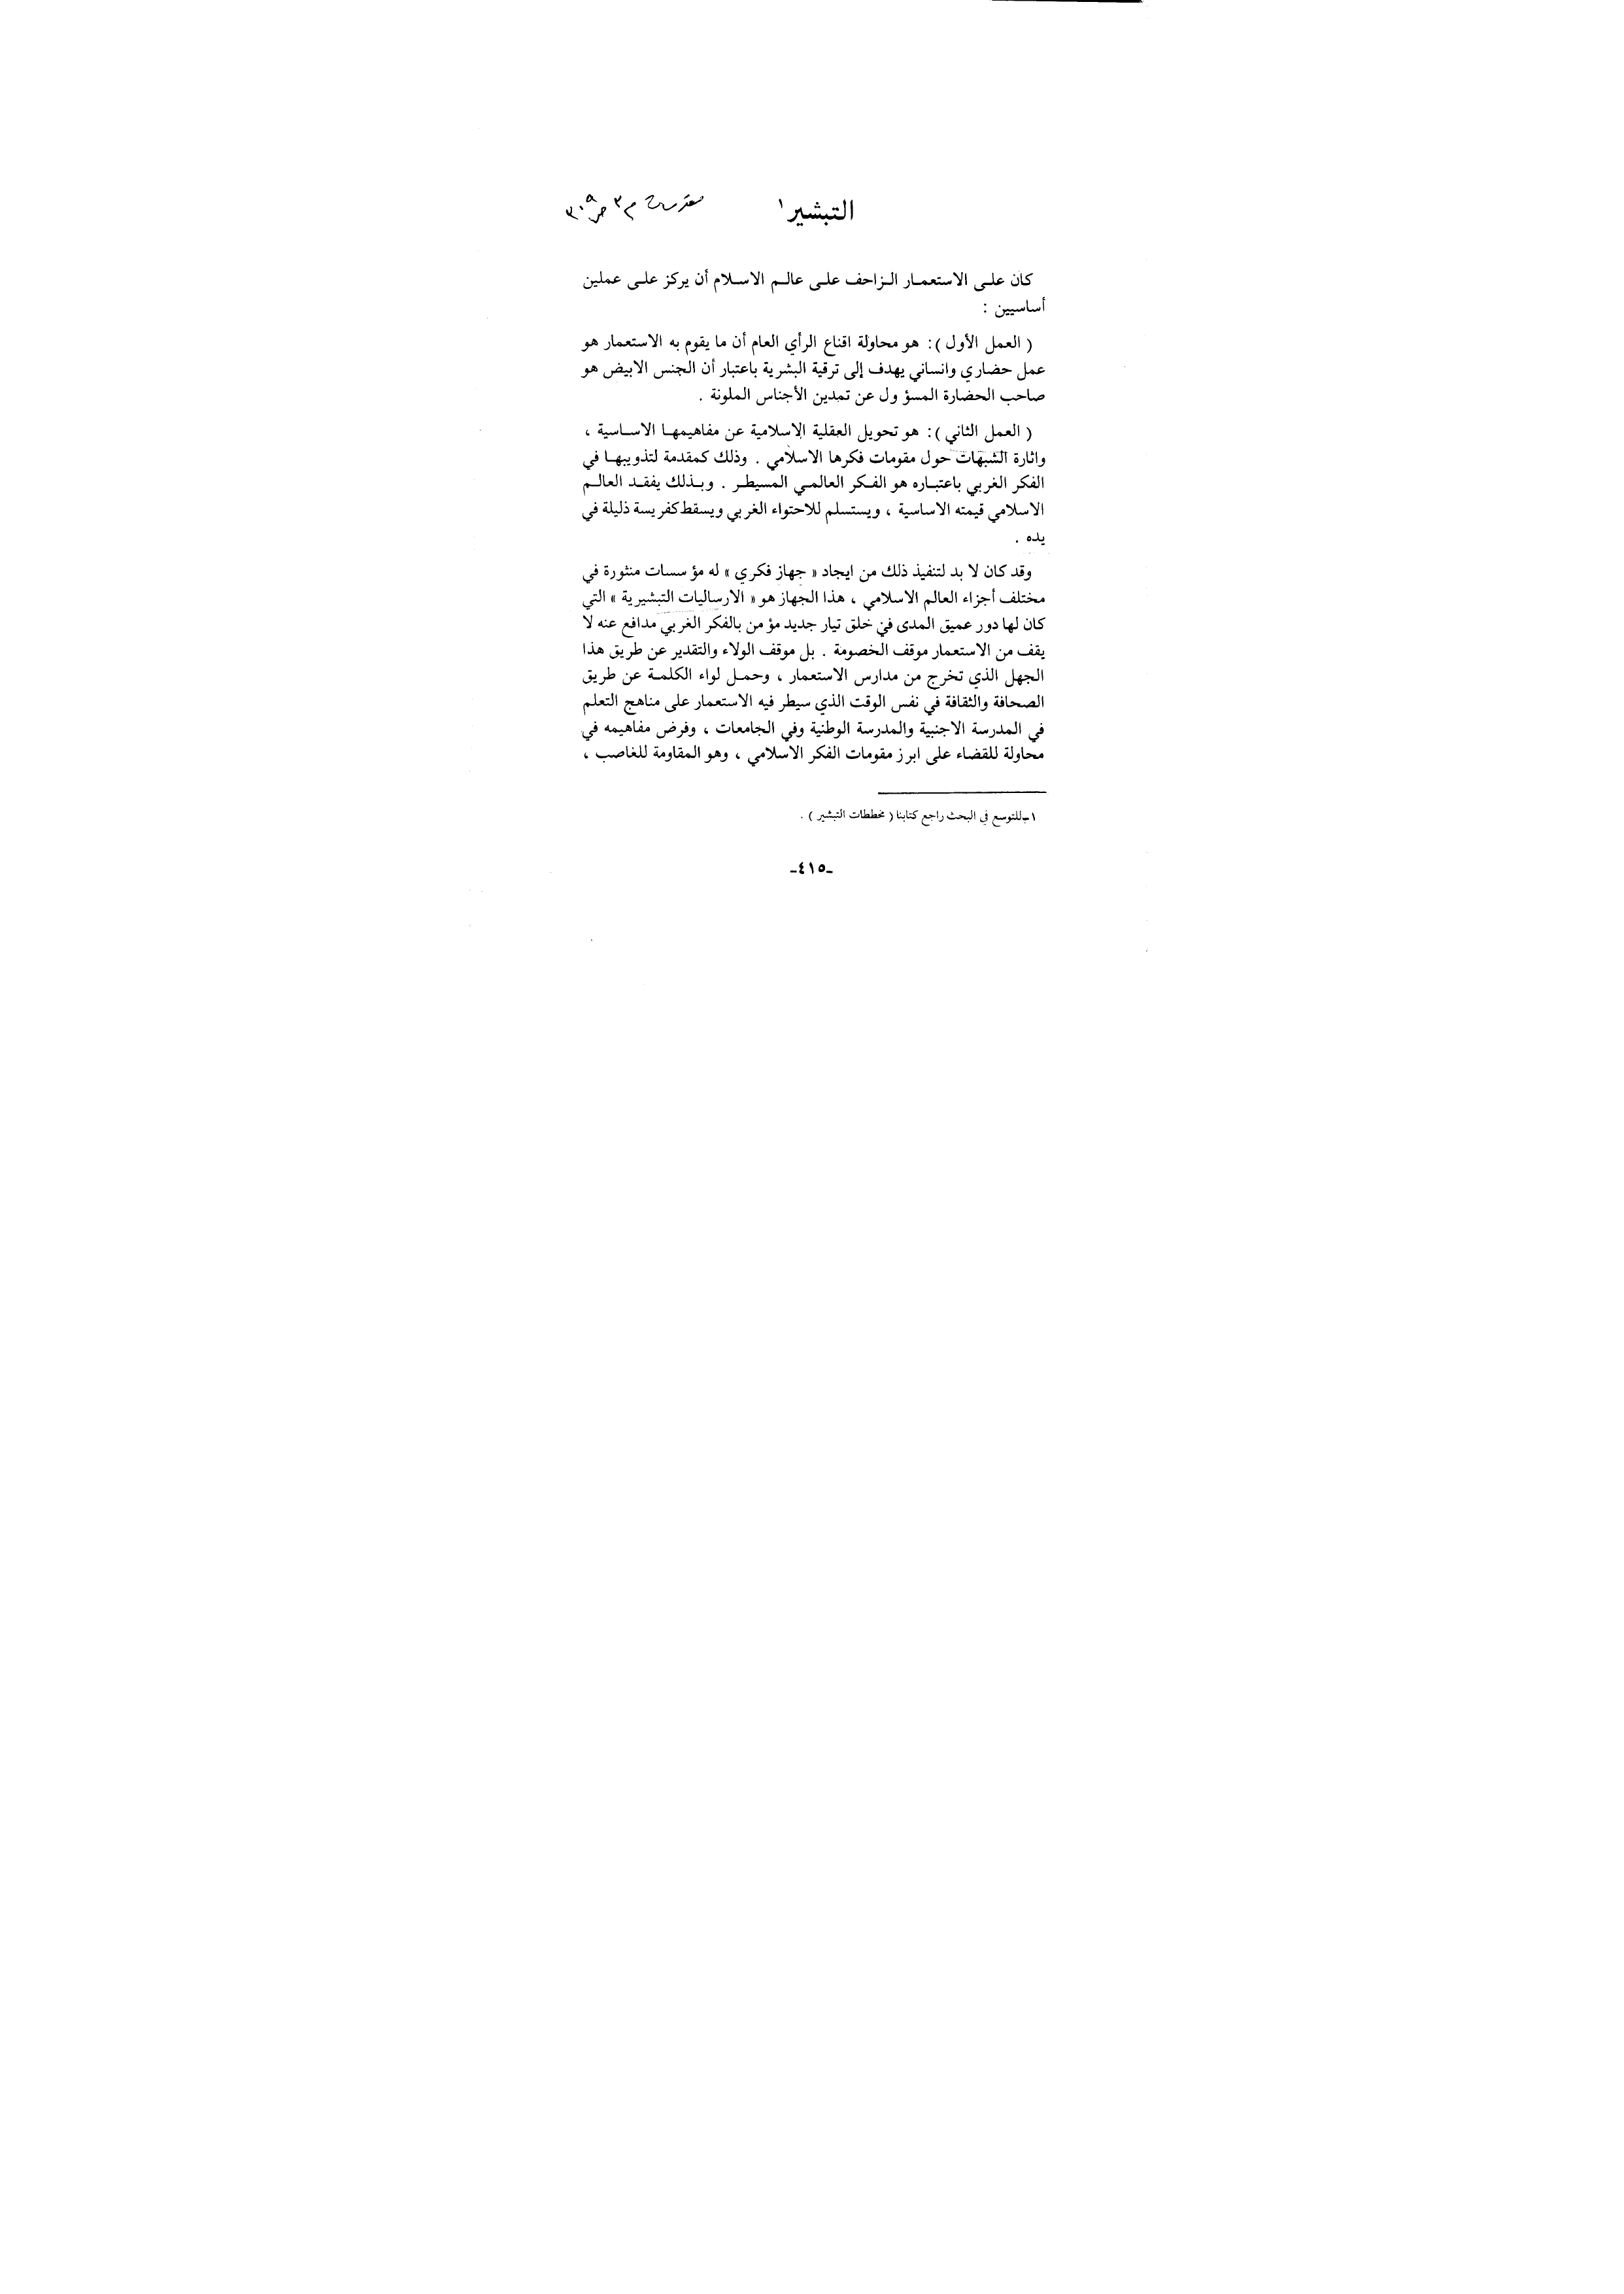 التبشير ١
كان على الاستعمار الزاحف على عالم الاسلام أن يركز على عملين
أساسيين :
( العمل الأول ) : هو محاولة اقناع الرأي العام أن ما يقوم به الاستعمار هو
عمل حضاري وانساني يهدف إلى ترقية البشرية باعتبار أن الجنس الابيض هو
صاحب الحضارة المسؤول عن تمدين الأجناس الملونة .
( العمل الثاني ) : هو تحويل العقلية الاسلامية عن مفاهيمها الاساسية ،
واثارة الشبهات حول مقومات فكرها الاسلامي . وذلك كمقدمة لتذويبها في
الفكر الغربي باعتباره هو الفكر العالمي المسيطر . وبذلك يفقد العالم
الاسلامي قيمته الاساسية ، ويستسلم للاحتواء الغربي ويسقط كفريسة ذليلة في
يده .
وقد كان لا بد لتنفيذ ذلك من ايجاد « جهاز فكري » له مؤسسات منثورة في
مختلف أجزاء العالم الاسلامي ، هذا الجهاز هو « الارساليات التبشيرية » التي
كان لها دور عميق المدى في خلق تيار جديد مؤمن بالفكر الغربي مدافع عنه لا
يقف من الاستعمار موقف الخصومة . بل موقف الولاء والتقدير عن طريق هذا
الجهل الذي تخرج من مدارس الاستعمار ، وحمل لواء الكلمة عن طريق
الصحافة والثقافة في نفس الوقت الذي سيطر فيه الاستعمار على مناهج التعلم
في المدرسة الاجنبية والمدرسة الوطنية وفي الجامعات ، وفرض مفاهيمه في
محاولة للقضاء على ابرز مقومات الفكر الاسلامي ، وهو المقاومة للغاصب ،
١- للتوسع في البحث راجع كتابنا ( مخططات التبشير ) .
-٤١٥-